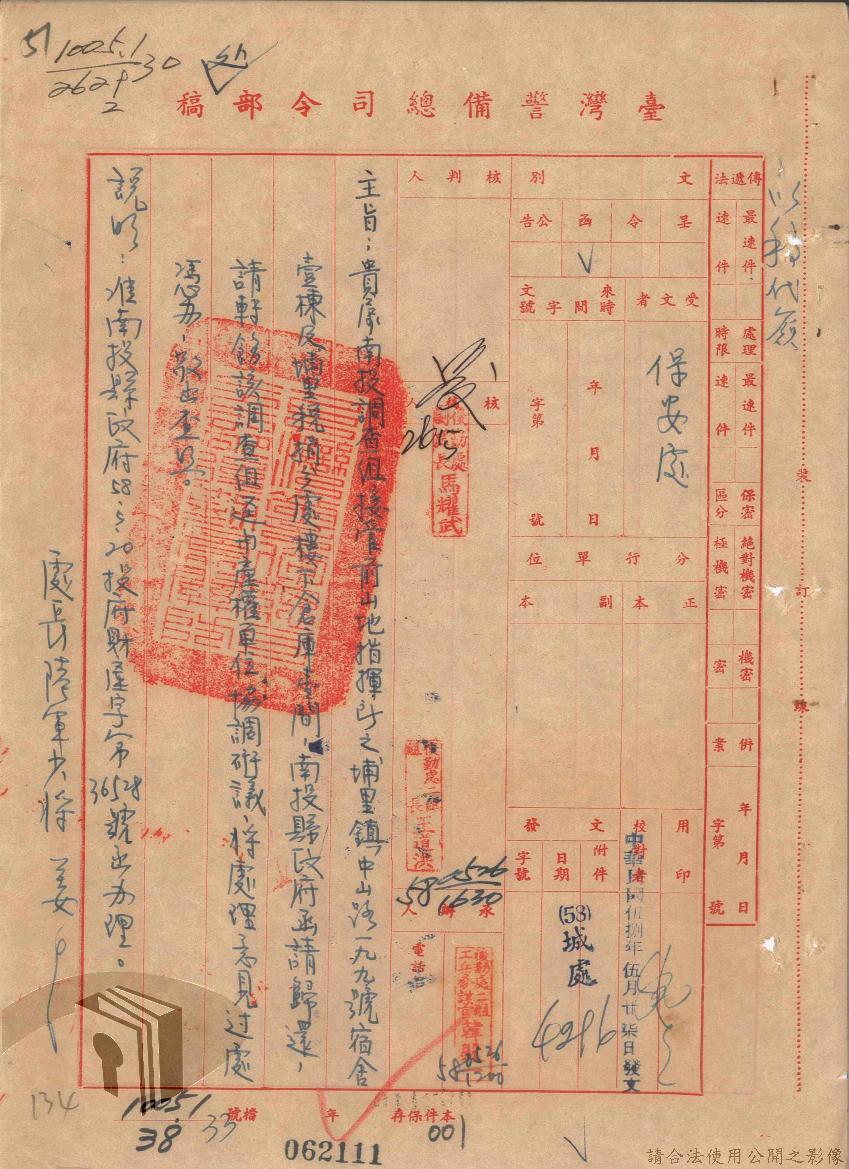 51
1005.1
2629
2
30
臺灣警備總司令部稿
以稿代簽
裝
訂
線
傳遞法
最速件
速件
處理時限
最速件
速件
保密區分
絕對機密
極機密
機密
密
併案
年月日
字第號
文別
呈
令
函
公告
✓
受文者
保安處
來文時間字號
年月日
字第號
分行單位
正本
副本
用印
校對者
發文
附件
日期
字號
中華民國伍捌年伍月廿柒日發文
(58)城處
4296
核判人
核人
2615
馬耀武
後勤處二組
組長王道洪
580526
1630
承辦人
電話
後勤處二組
工兵參謀官韓
580526
1200
主旨：貴屬南投調查組接管前山地指揮所之埔里鎮中山路一九九號宿舍
壹棟及埔里稅捐分處樓下倉庫壹間，南投縣政府函請歸還，
請轉飭該調查組逕與產權單位協調研議，將處理意見過處
憑辦，敬函查照。
說明：准南投縣政府58.5.20投府財產字第36528號函辦理。
處長陸軍少將姜
134
1005.1
38
33
檔號
年
本件保存
001
062111
請合法使用公開之影像